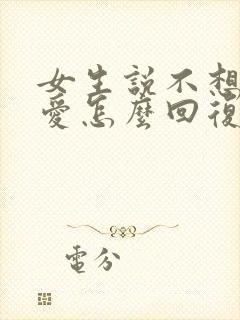 女生説不想
愛怎麼回復
電分